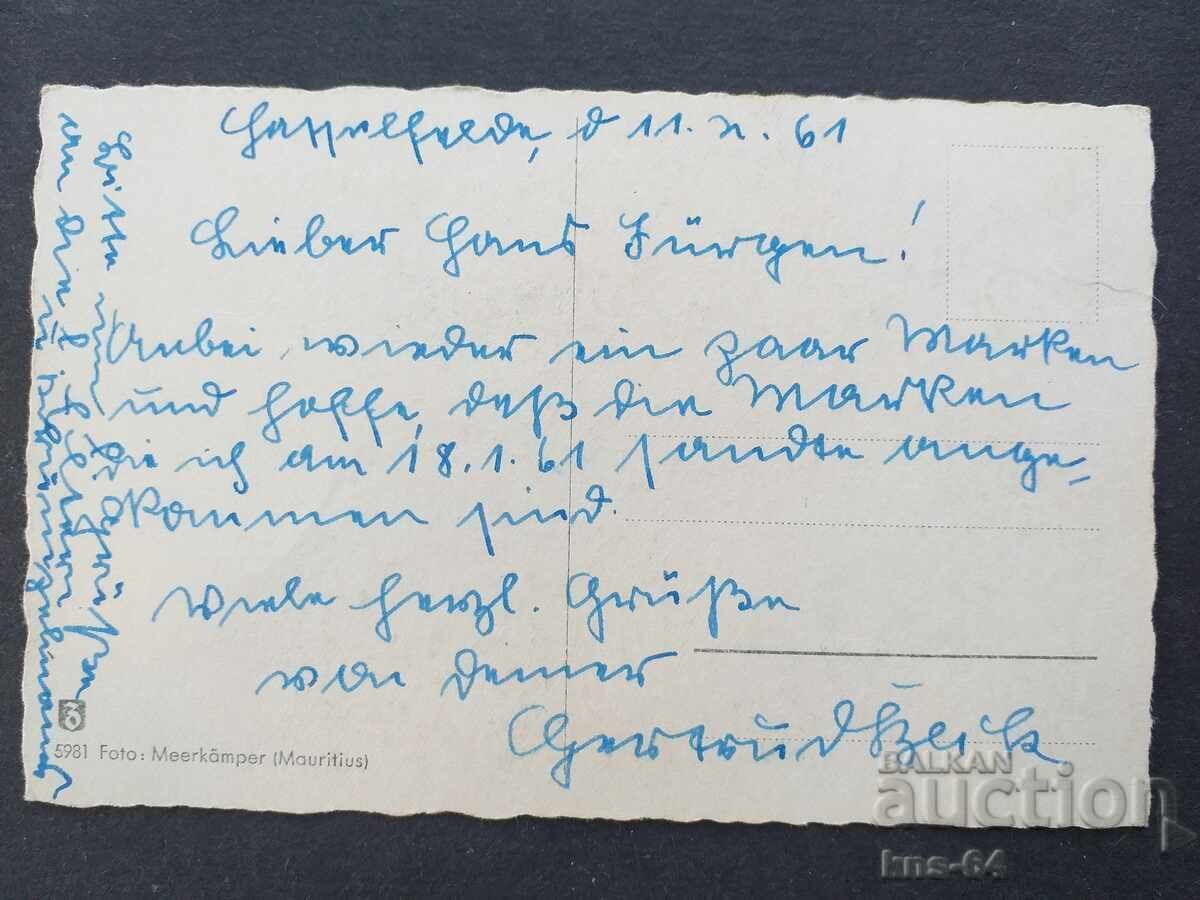 Hasselfelde, d 11. 2. 61
Lieber Hans Jürgen!
Anbei wieder ein paar Marken
und hoffe, daß die Marken
die ich am 18.1.61 sandte ange-
kommen sind.
Viele herzl. Grüße
von Deiner
Gertrud
Bitte
grüßen
Eltern
5981 Foto: Meerkämper (Mauritius)
BALKAN
auction
kns-64